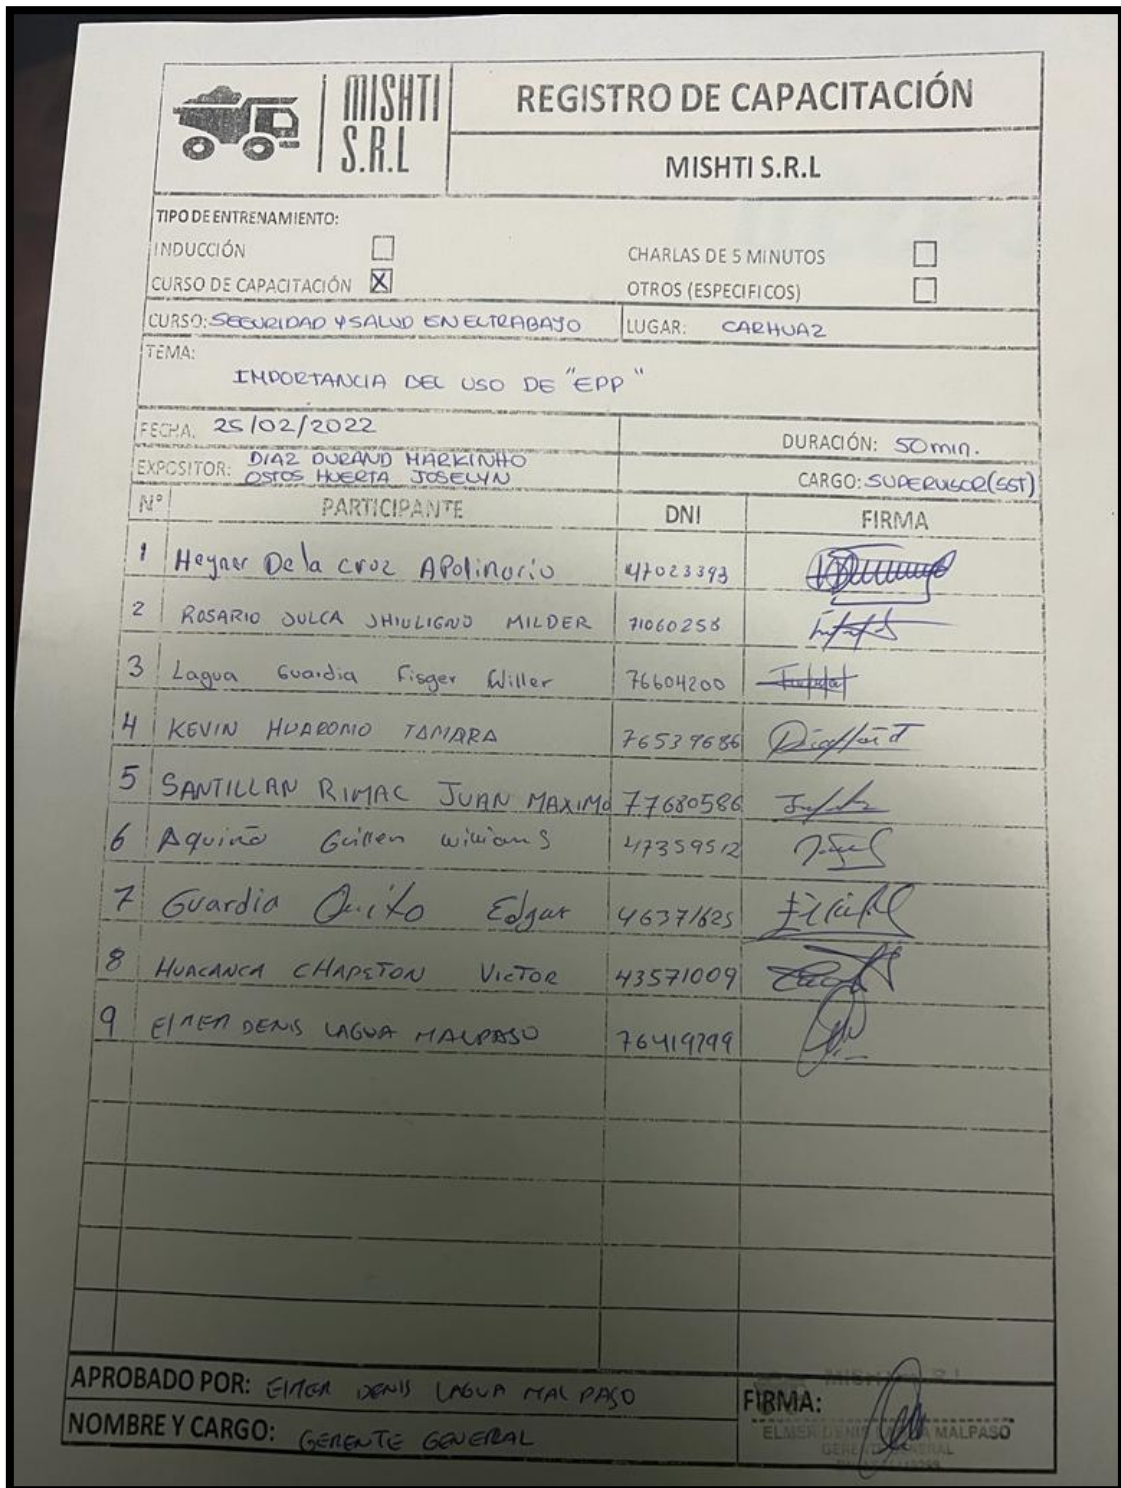 MISHTI
S.R.L
REGISTRO DE CAPACITACIÓN
MISHTI S.R.L
TIPO DE ENTRENAMIENTO:
INDUCCIÓN
CHARLAS DE 5 MINUTOS
CURSO DE CAPACITACIÓN X
OTROS (ESPECIFICOS)
CURSO: SEGURIDAD Y SALUD EN EL TRABAJO LUGAR: CARHUAZ
TEMA:
IMPORTANCIA DEL USO DE "EPP"
FECHA. 25/02/2022 DURACIÓN: 50 min.
EXPOSITOR: DIAZ DURAND MARKINHO
OSTOS HUERTA JOSELYN
CARGO: SUPERVISOR (SST)
Nº PARTICIPANTE DNI FIRMA
1 Heyner De la cruz APolinario 47023393
2 ROSARIO JULCA JHIULIGNO MILDER 71060258
3 Lagua Guardia Fisger Willer 76604200
4 KEVIN HUAROMO TAMARA 76539686
5 SANTILLAN RIMAC JUAN MAXIMO 77680586
6 Aquino Guillen williams 47359512
7 Guardia Quito Edgar 46371625
8 HUACANCA CHAPETON VICTOR 43571009
9 ElMER DENIS LAGUA MALPASO 76419299
APROBADO POR: ElMER DENIS LAGUA MALPASO
NOMBRE Y CARGO: GERENTE GENERAL
FIRMA:
MISHTI S.R.L
ELMER DENIS LAGUA MALPASO
GERENTE GENERAL